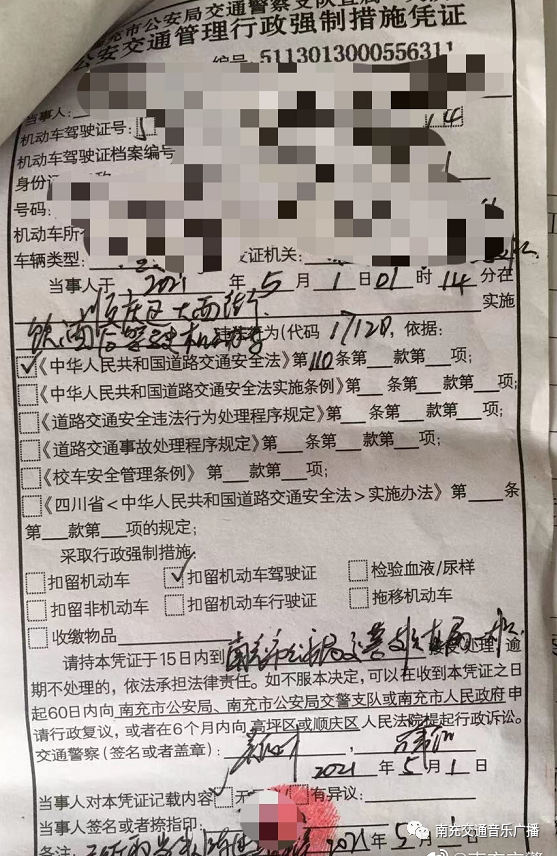 南充市公安局交通警察支队直属
公安交通管理行政强制措施凭证
编号:5113013000556311
当事人:
机动车驾驶证号: 14
机动车驾驶证档案编号
号码:
机动车所
车辆类型: 发证机关:
当事人于 2021 年 5 月 1 日 01 时 14 分在
顺庆区大西街 实施
饮酒后驾驶机动车 行为(代码 17128, 依据:
☑《中华人民共和国道路交通安全法》第110条第__款第__项;
□《中华人民共和国道路交通安全法实施条例》第__条第__款第__项;
□《道路交通安全违法行为处理程序规定》第__条第__款第__项;
□《道路交通事故处理程序规定》第__条第__款第__项;
□《校车安全管理条例》第__款第__项;
□《四川省<中华人民共和国道路交通安全法>实施办法》第__条
第__款第__项的规定;
采取行政强制措施:
□扣留机动车 ☑扣留机动车驾驶证 □检验血液/尿样
□扣留非机动车 □扣留机动车行驶证 □拖移机动车
□收缴物品
请持本凭证于15日内到南充市公安局交警支队直属 接受处理,逾
期不处理的,依法承担法律责任。如不服本决定,可以在收到本凭证之日
起60日内向 南充市公安局、南充市公安局交警支队或南充市人民政府 申
请行政复议,或者在6个月内向 高坪区或顺庆区 人民法院提起行政诉讼。
交通警察(签名或者盖章):
2021 年 5 月 1 日
当事人对本凭证记载内容 ☑无 □有异议:
当事人签名或者捺指印:
备注: 2021年5月
南充交通音乐广播